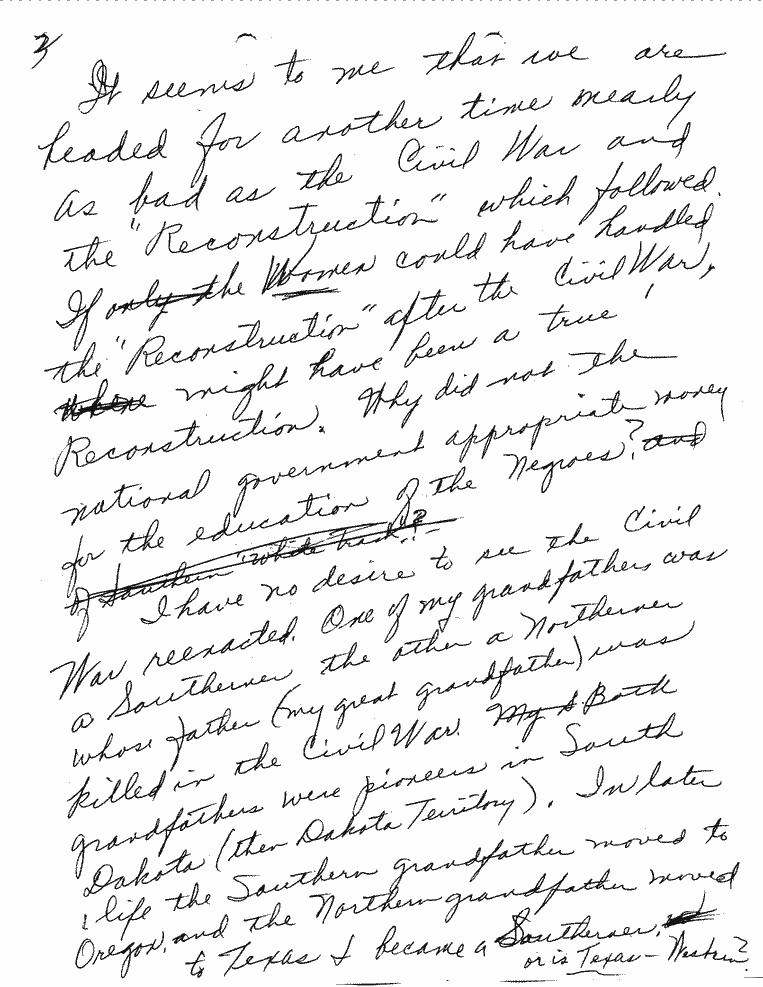 3
It seems to me that we are
headed for another time nearly
as bad as the Civil War and
the "Reconstruction" which followed.
If only the Women could have handled
the "Reconstruction" after the Civil War,
there might have been a true
Reconstruction. Why did not the
national government appropriate money
for the education of the Negroes? and
of Southern "white trash"?
I have no desire to see the Civil
War reenacted. One of my grandfathers was
a Southerner the other a Northerner
whose father (my great grandfather) was
killed in the Civil War. My S Both
grandfathers were pioneers in South
Dakota (then Dakota Territory). In later
life the Southern grandfather moved to
Oregon, and the Northern grandfather moved
to Texas & became a Southerner,
or is Texas — Western?